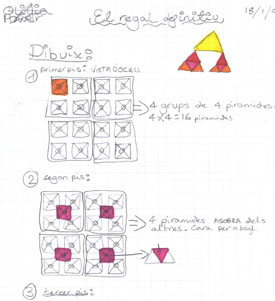 El regal definitiu
18/1/0
Dibuix:
1 primer pis: VISTA D'OCELL
4 grups de 4 piramides.
4x4=16 piramides
2 segon pis:
4 piramides ASOBRA dels
altres. Cara per aball
3 tercer pis: